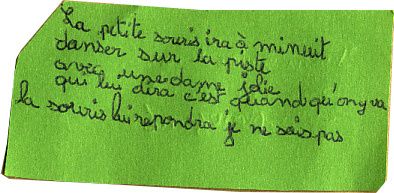 La petite souris ira à minuit
danser sur la piste
avec une dame jolie
qui lui dira c'est quand qu'on y va
la souris lui repondra je ne sais pas